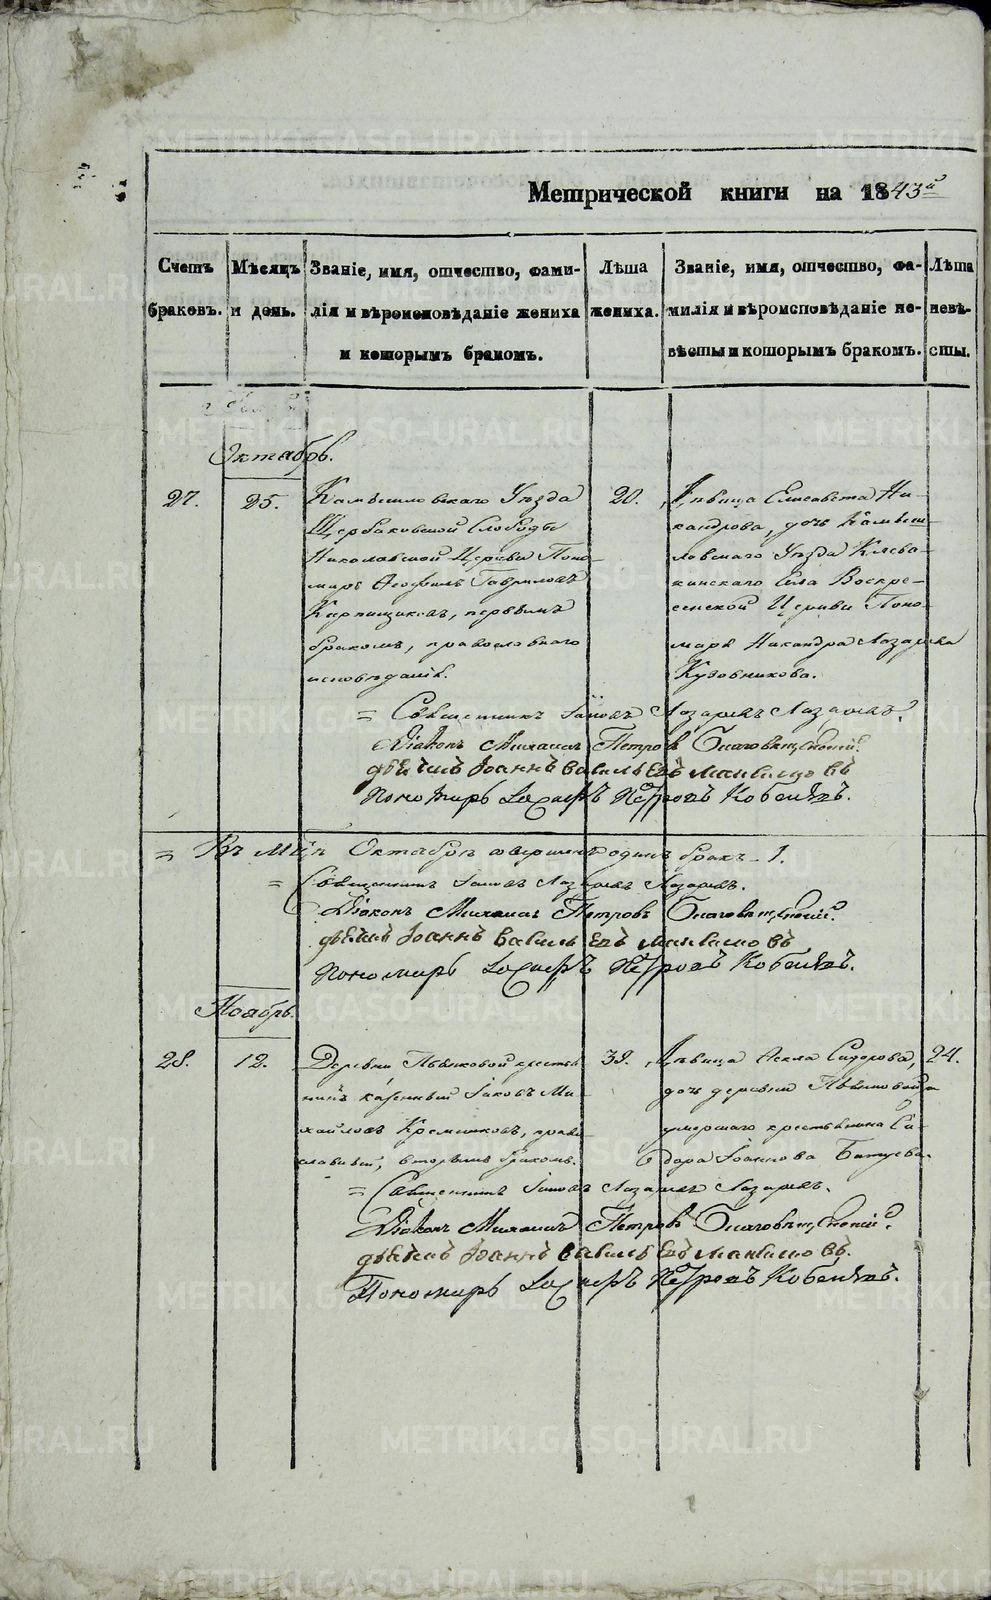 Метрической книги на 1843й
Счетъ браковъ.
Мѣсяцъ и день.
Званіе, имя, отчество, фами-
лія и вѣроисповѣданіе жениха
и которымъ бракомъ.
Лѣта жениха.
Званіе, имя, отчество, фа-
милія и вѣроисповѣданіе не-
вѣсты и которымъ бракомъ.
Лѣта невѣ-
сты.
Октябрь.
27.
25.
Камышловскаго Уѣзда
Щербаковской Слободы
Николаевской Церкви Поно-
марь Феофилъ Гавриловъ
первымъ
бракомъ, православнаго
исповѣданія.
20.
Дѣвица Елисавета Ни-
кандрова, дочь Камыш-
ловскаго Уѣзда Клева-
кинскаго Села Воскре-
сенской Церкви Поно-
маря Никандра Лазарева
Кузовникова.
= Священникъ Іаковъ Лазаревъ Лазаревъ.
Діаконъ Михаилъ Петровъ Благовѣщенскій.
дьячекъ Іоаннъ Васильевъ
Пономарь Петровъ
= Въ мцѣ Октябрѣ совершенъ одинъ бракъ - 1.
= Священникъ Іаковъ Лазаревъ Лазаревъ.
Діаконъ Михаилъ Петровъ Благовѣщенскій.
дьячекъ Іоаннъ Васильевъ
Пономарь Петровъ
Ноябрь.
28.
12.
Деревни крестья-
нинъ казенный Іаковъ Ми-
хайловъ право-
славный, вторымъ бракомъ.
38.
Дѣвица Фекла Сидорова,
дочь деревни
умершаго крестьянина Си-
дора Іоаннова
24.
= Священникъ Іаковъ Лазаревъ Лазаревъ.
Діаконъ Михаилъ Петровъ Благовѣщенскій.
дьячекъ Іоаннъ Васильевъ
Пономарь Петровъ
METRIKI.GASO-URAL.RU